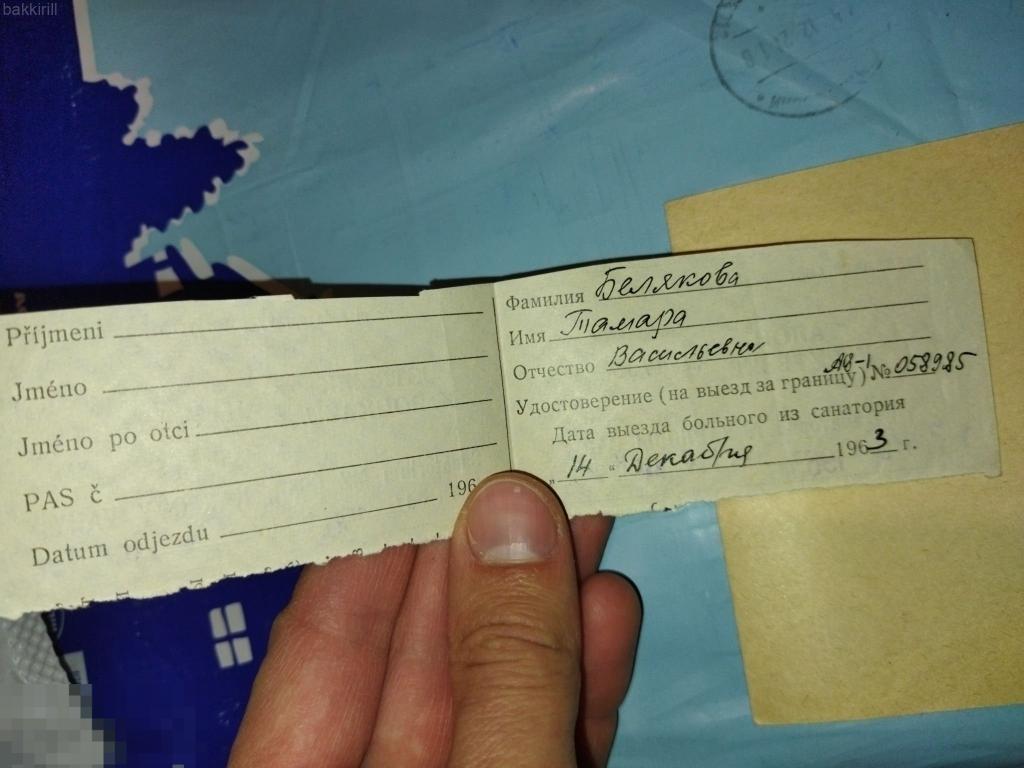 bakkirill
Příjmeni
Jméno
Jméno po otci
PAS č
196
Datum odjezdu
Фамилия Белякова
Имя Тамара
Отчество Васильевна
Удостоверение (на выезд за границу) АБ-1 № 058985
Дата выезда больного из санатория
„14“ Декабря 1963 г.